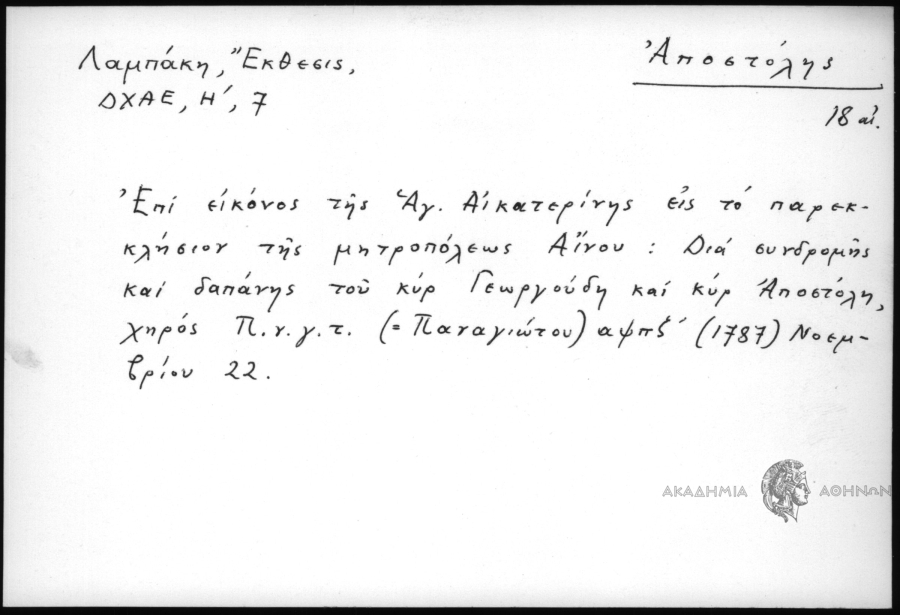 Λαμπάκη, Ἔκθεσις,
ΔΧΑΕ, Η΄, 7
Ἀποστόλης
18 αἰ.
Ἐπί εἰκόνος τῆς Ἁγ. Αἰκατερίνης εἰς τό παρεκ-
κλήσιον τῆς μητροπόλεως Αἴνου : Διά συνδρομῆς
καί δαπάνης τοῦ κύρ Γεωργούδη καί κύρ Ἀποστόλη,
χηρός Π.ν.γ.τ. (= Παναγιώτου) αψπζ΄ (1787) Νοεμ-
βρίου 22.
ΑΚΑΔΗΜΙΑ ΑΘΗΝΩΝ